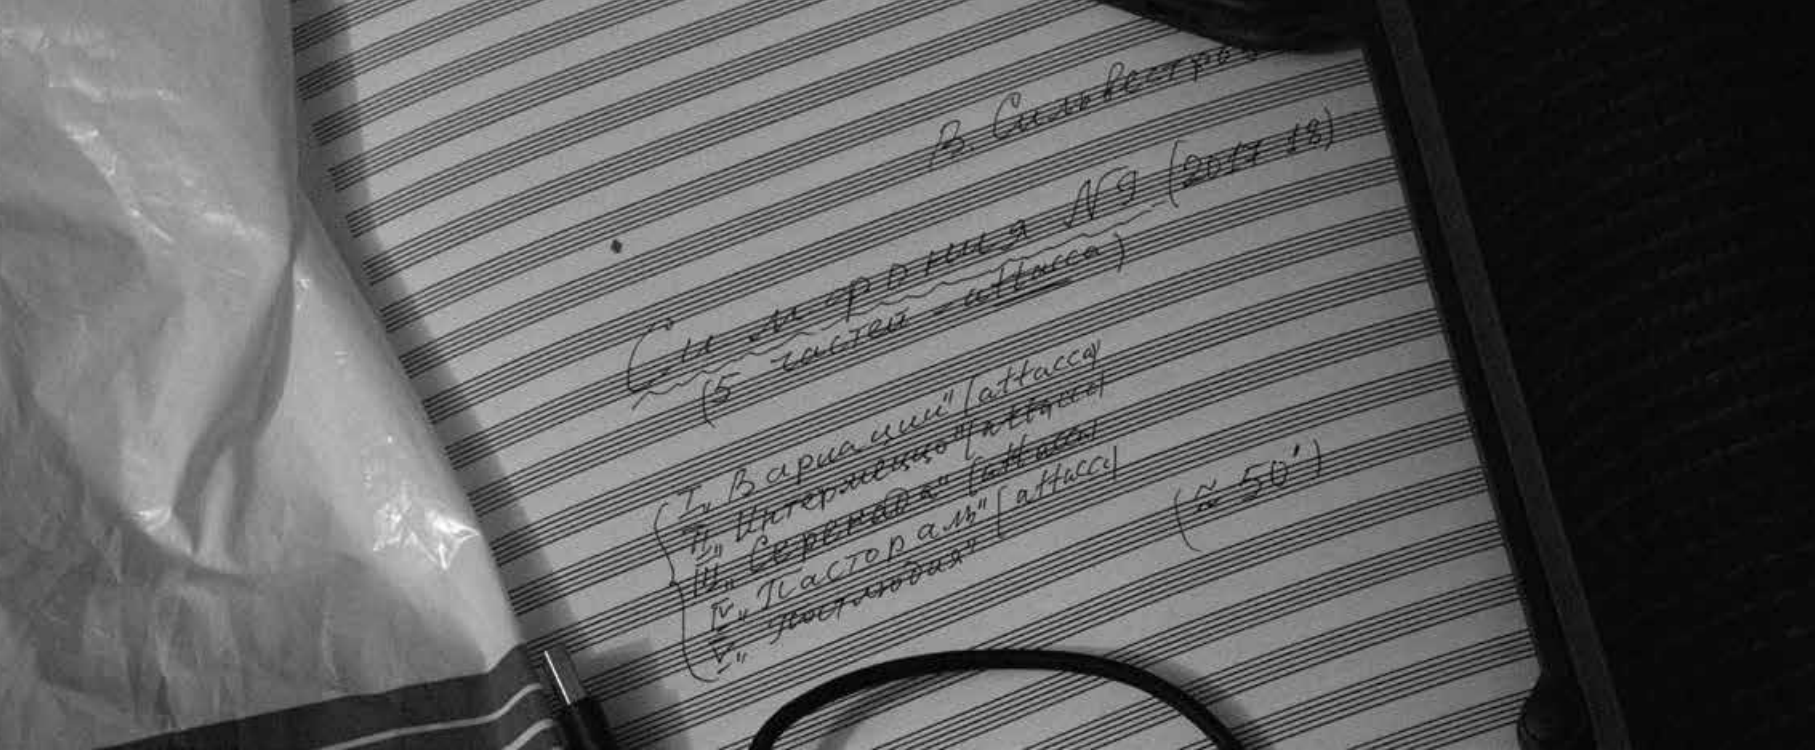 В. Сильвестров
Симфония N9 (2017-18)
(5 частей - attacca)
I „Вариации" (attacca)
II „Интермеццо" (attacca)
III „Серенада" (attacca)
IV „Пастораль" (attacca)
V „Постлюдия"
(≈ 50')